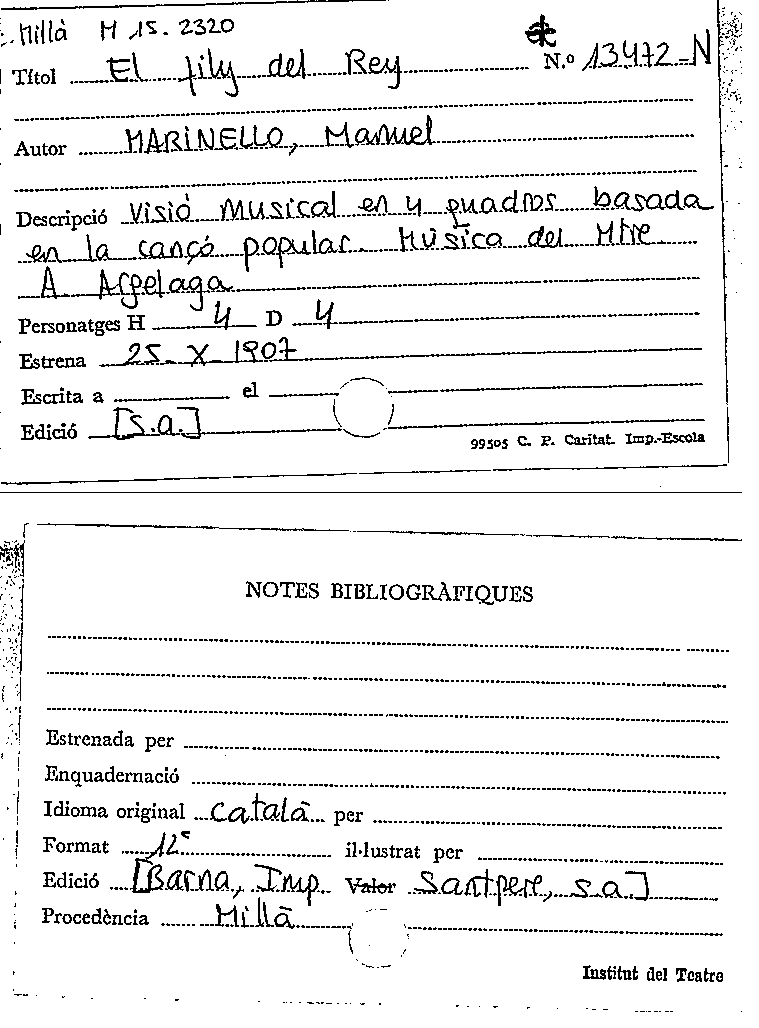 Millà M 15.2320
Títol El fill del Rey N.º 13472-N
Autor MARINELLO, Manuel
Descripció Visió Musical en 4 quadros basada
en la cançó popular. Música del Mtre
A Argelaga
Personatges H 4 D 4
Estrena 25-X-1907
Escrita a el
Edició [s.a.]
99505 C. P. Caritat. Imp.-Escola
NOTES BIBLIOGRÀFIQUES
Estrenada per
Enquadernació
Idioma original català per
Format 12º il·lustrat per
Edició [Barna, Imp. Valor Santpere, s.a.]
Procedència Millà
Institut del Teatre